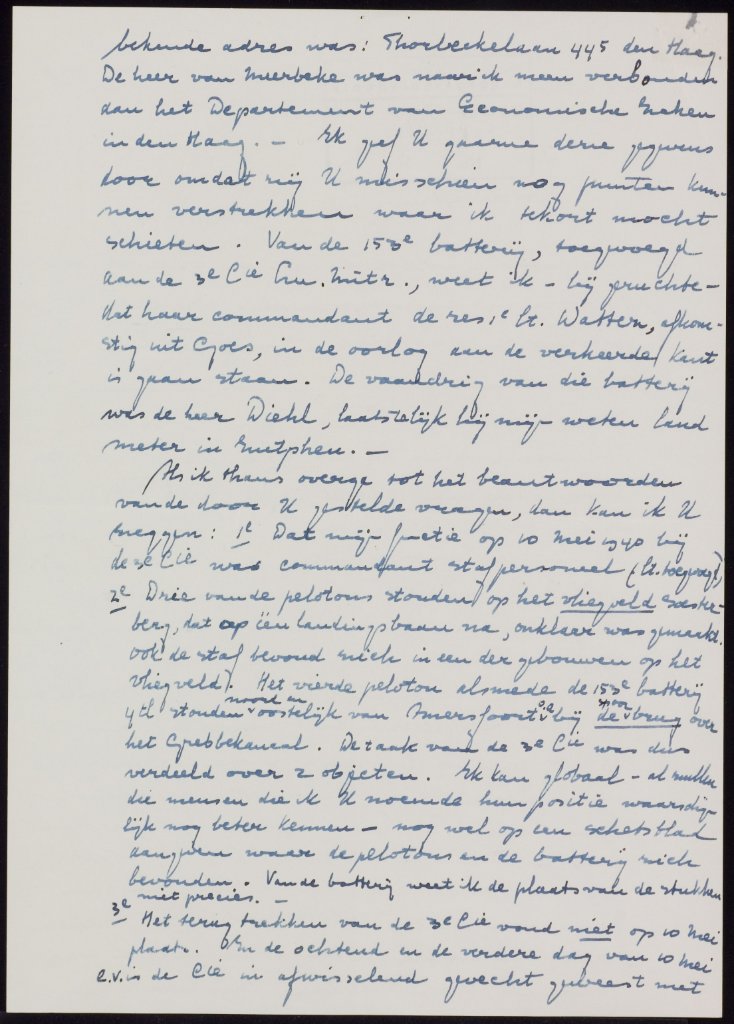 bekende adres was: Thorbeckelaan 445 den Haag.
De heer van Meerbeke was naar ik meen verbonden
aan het Departement van Economische Zaken
in den Haag. – Ik geef U gaarne deze gegevens
door omdat zij U misschien nog punten kun-
nen verstrekken waar ik tekort mocht
schieten. Van de 153e batterij, toegevoegd
aan de 3e Cie Lu. Mitr., weet ik – bij geruchte –
dat haar commandant de res. 1e lt. Wattern, afkom-
stig uit Goes, in de oorlog aan de verkeerde kant
is gaan staan. De vaandrig van die batterij
was de heer Diehl, laatstelijk bij mijn weten land
meter in Zutphen. –
Als ik thans overga tot het beantwoorden
van de door U gestelde vragen, dan kan ik U
zeggen: 1e Dat mijn functie op 10 Mei 1940 bij
de 3e Cie was commandant stafpersoneel (lt. toegevoegd)
2e Drie van de pelotons stonden op het vliegveld Soester-
berg, dat op één landingsbaan na, onklaar was gemaakt.
Ook de staf bevond zich in een der gebouwen op het
vliegveld. Het vierde peloton alsmede de 153e batterij
4 tl stonden noord en oostelijk van Amersfoort o.a. bij de spoorbrug over
het Grebbekanaal. De taak van de 3e Cie was dus
verdeeld over 2 objecten. Ik kan globaal – al zullen
die mensen die ik U noemde hun positie waarschijn-
lijk nog beter kennen – nog wel op een schetsblad
aangeven waar de pelotons en de batterij zich
bevonden. Van de batterij weet ik de plaats van de stukken
niet precies. –
3e Het terugtrekken van de 3e Cie vond niet op 10 Mei
plaats. In de ochtend en de verdere dag van 10 Mei
e.v. is de Cie in afwisselend gevecht geweest met